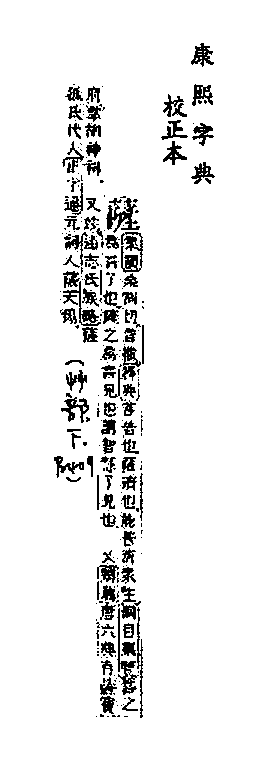 康熙字典
校正本
薩
集韻桑割切音撒釋典菩普也薩濟也能普濟衆生綱目集覽釋之
爲言了也薩之爲言見也謂智慧了見也 又類薩唐六典有薩寶
府掌胡神祠 又姓通志氏族略薩
孤氏代人正字通元詞人薩天錫
(艸部.下.